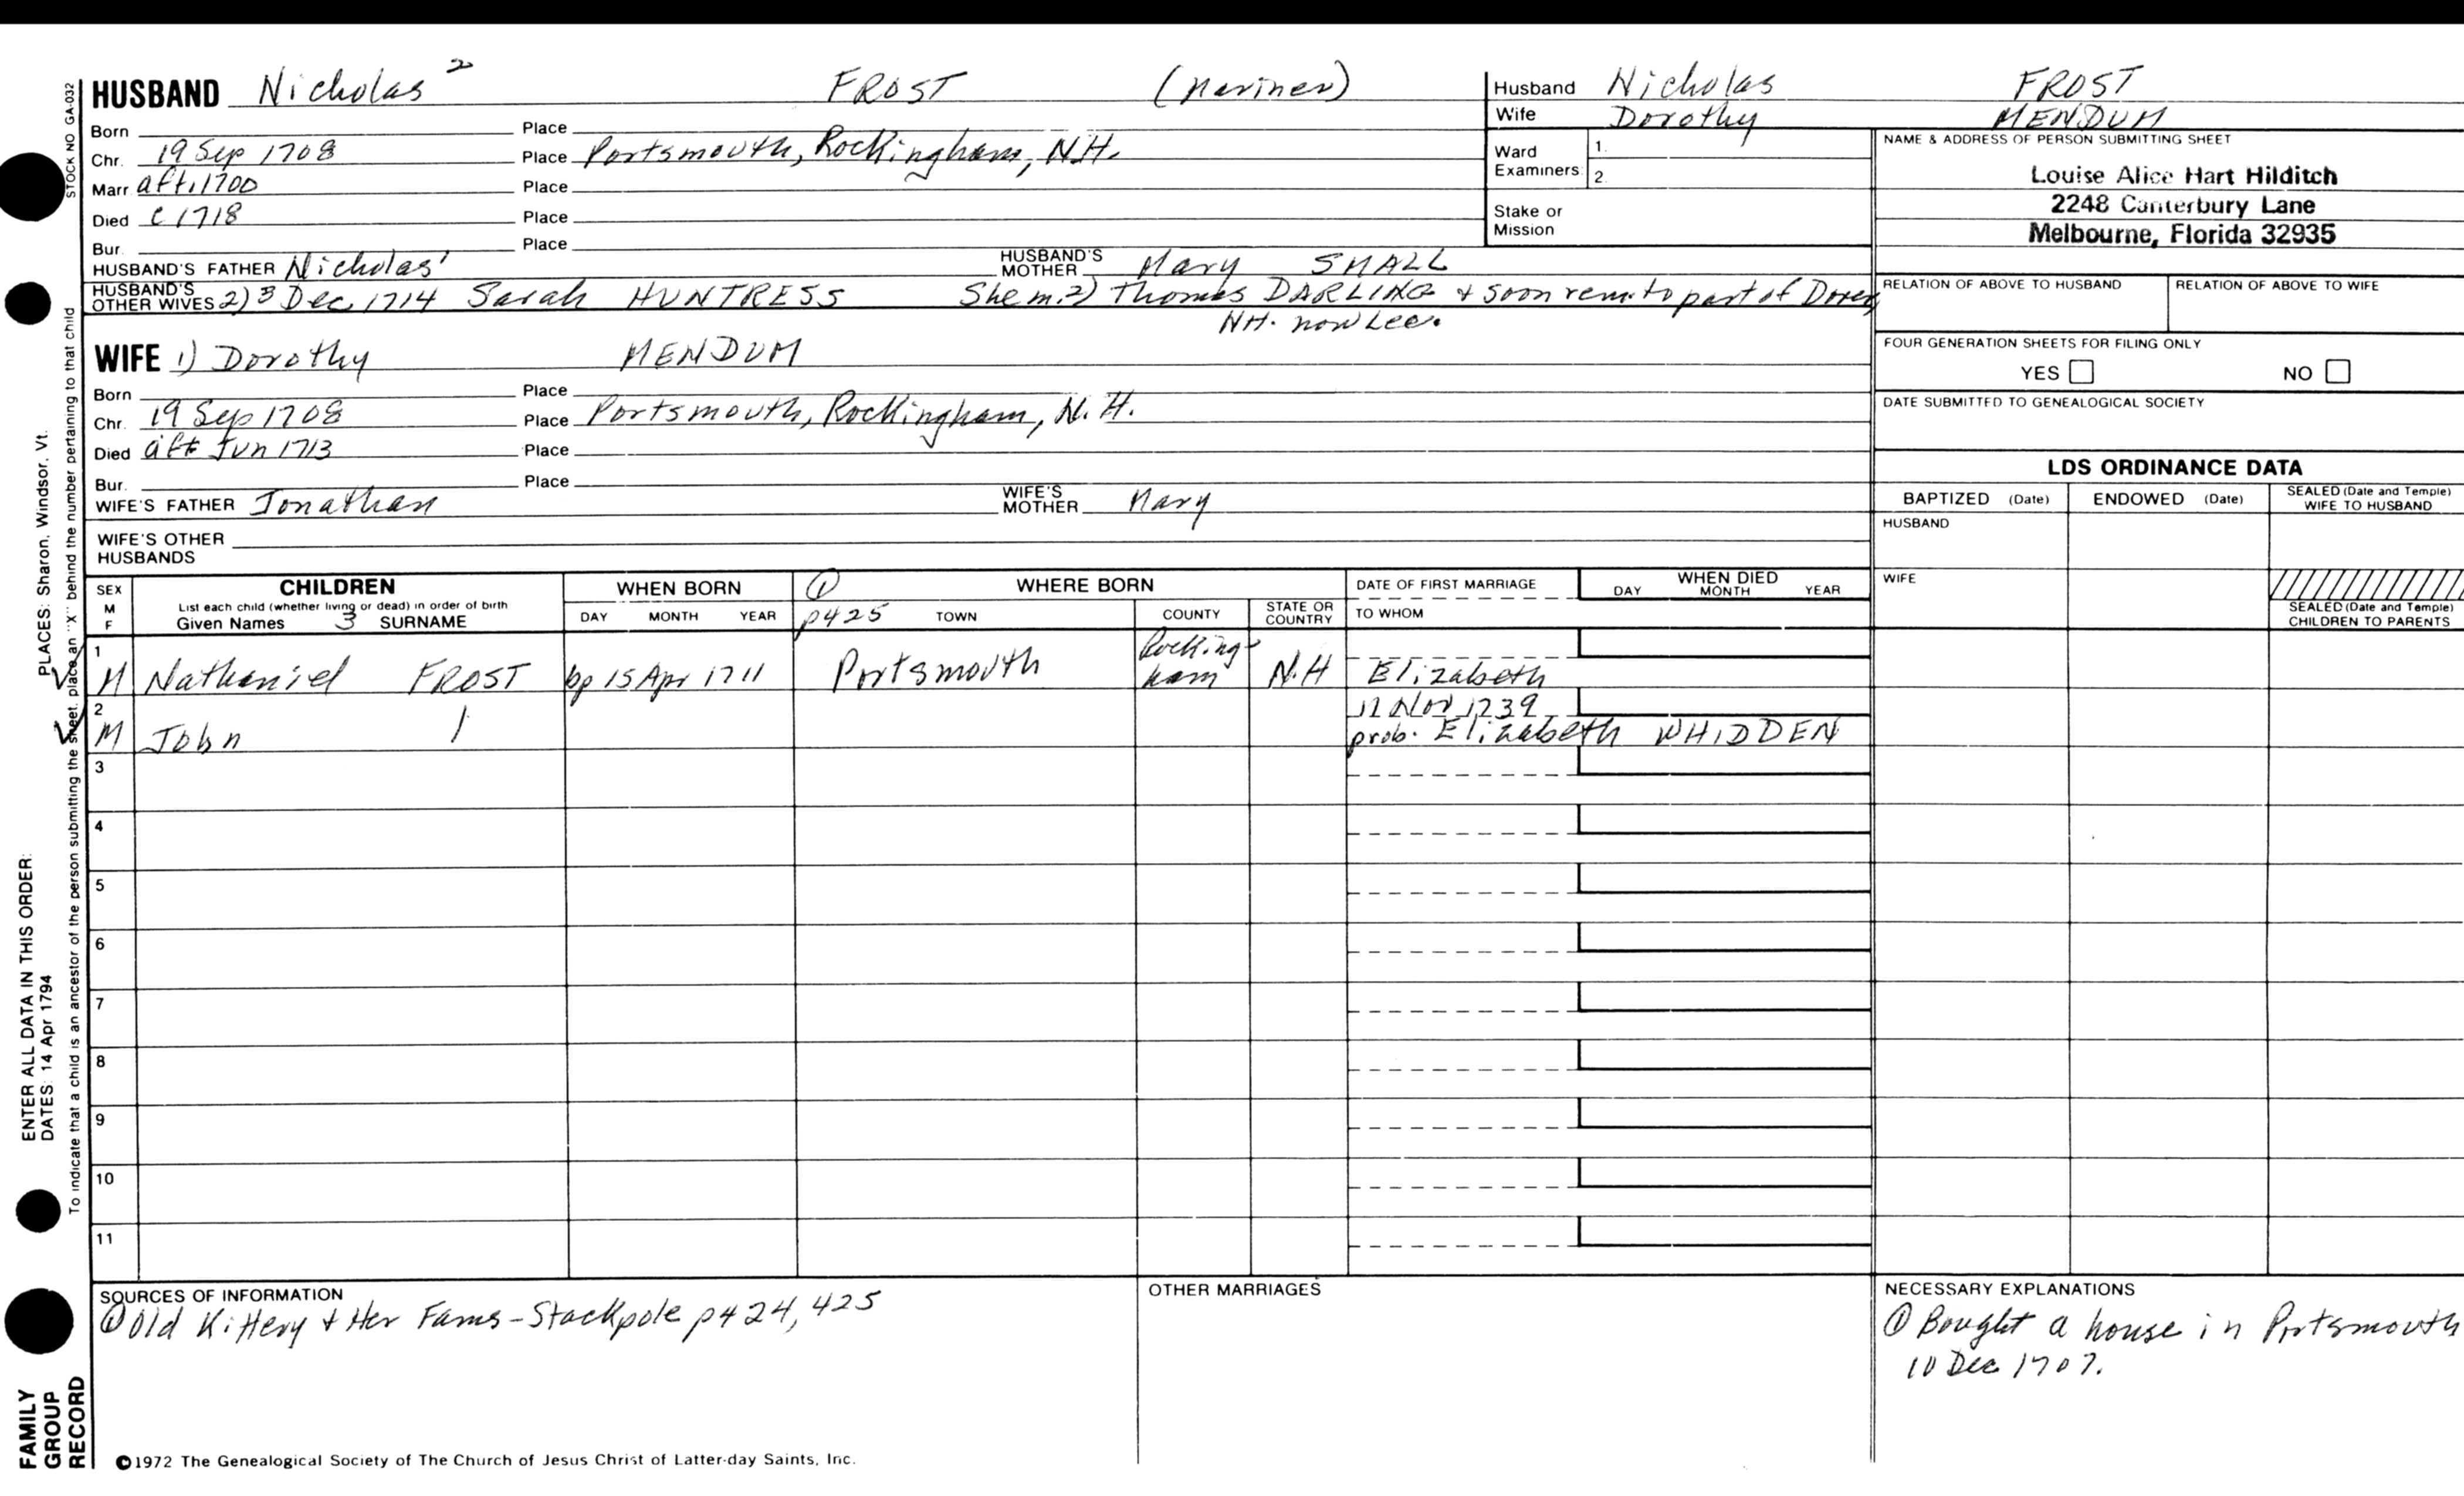 HUSBAND Nicholas 2 FROST (Mariner)
Born Place
Chr. 19 Sep 1708 Place Portsmouth, Rockingham, N.H.
Marr aft. 1700 Place
Died c 1718 Place
Bur. Place
HUSBAND'S FATHER Nicholas 1 HUSBAND'S MOTHER Mary SMALL
HUSBAND'S OTHER WIVES 2) 3 Dec. 1714 Sarah HUNTRESS She m. 2) Thomas DARLING & soon rem. to part of Dover
NH. now Lee.
WIFE 1) Dorothy MENDUM
Born Place
Chr. 19 Sep 1708 Place Portsmouth, Rockingham, N. H.
Died aft Jun 1713 Place
Bur. Place
WIFE'S FATHER Jonathan WIFE'S MOTHER Mary
WIFE'S OTHER
HUSBANDS
Husband Nicholas FROST
Wife Dorothy MENDUM
Ward Examiners 1.
2.
Stake or
Mission
NAME & ADDRESS OF PERSON SUBMITTING SHEET
Louise Alice Hart Hilditch
2248 Canterbury Lane
Melbourne, Florida 32935
RELATION OF ABOVE TO HUSBAND RELATION OF ABOVE TO WIFE
FOUR GENERATION SHEETS FOR FILING ONLY
YES NO
DATE SUBMITTED TO GENEALOGICAL SOCIETY
LDS ORDINANCE DATA
BAPTIZED (Date) ENDOWED (Date) SEALED (Date and Temple) WIFE TO HUSBAND
HUSBAND
WIFE
SEALED (Date and Temple)
CHILDREN TO PARENTS
SEX M F CHILDREN WHEN BORN ① WHERE BORN DATE OF FIRST MARRIAGE WHEN DIED
List each child (whether living or dead) in order of birth
Given Names 3 SURNAME DAY MONTH YEAR p425 TOWN COUNTY STATE OR COUNTRY TO WHOM DAY MONTH YEAR
1 M Nathaniel FROST bp 15 Apr 1711 Portsmouth Rocking-ham N.H Elizabeth
2 11 Nov 1739
M John prob. Elizabeth WHIDDEN
3
4
5
6
7
8
9
10
11
SOURCES OF INFORMATION
① Old Kittery & Her Fams - Stackpole p424, 425
OTHER MARRIAGES
NECESSARY EXPLANATIONS
① Bought a house in Portsmouth
10 Dec 1707.
©1972 The Genealogical Society of The Church of Jesus Christ of Latter-day Saints, Inc.
STOCK NO GA-032
To indicate that a child is an ancestor of the person submitting the sheet, place an "X" behind the number pertaining to that child
ENTER ALL DATA IN THIS ORDER: PLACES: Sharon, Windsor, Vt.
DATES: 14 Apr 1794
FAMILY
GROUP
RECORD